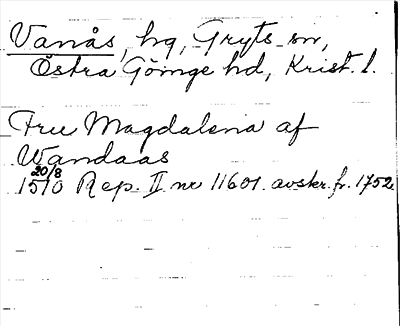 Vanås, hg, Gryts sn,
Östra Göinge hd, Krist. l.
Fru Magdalena af
Wandaas
20/8
1510 Rep. II nr 11601. avskr. fr. 1752